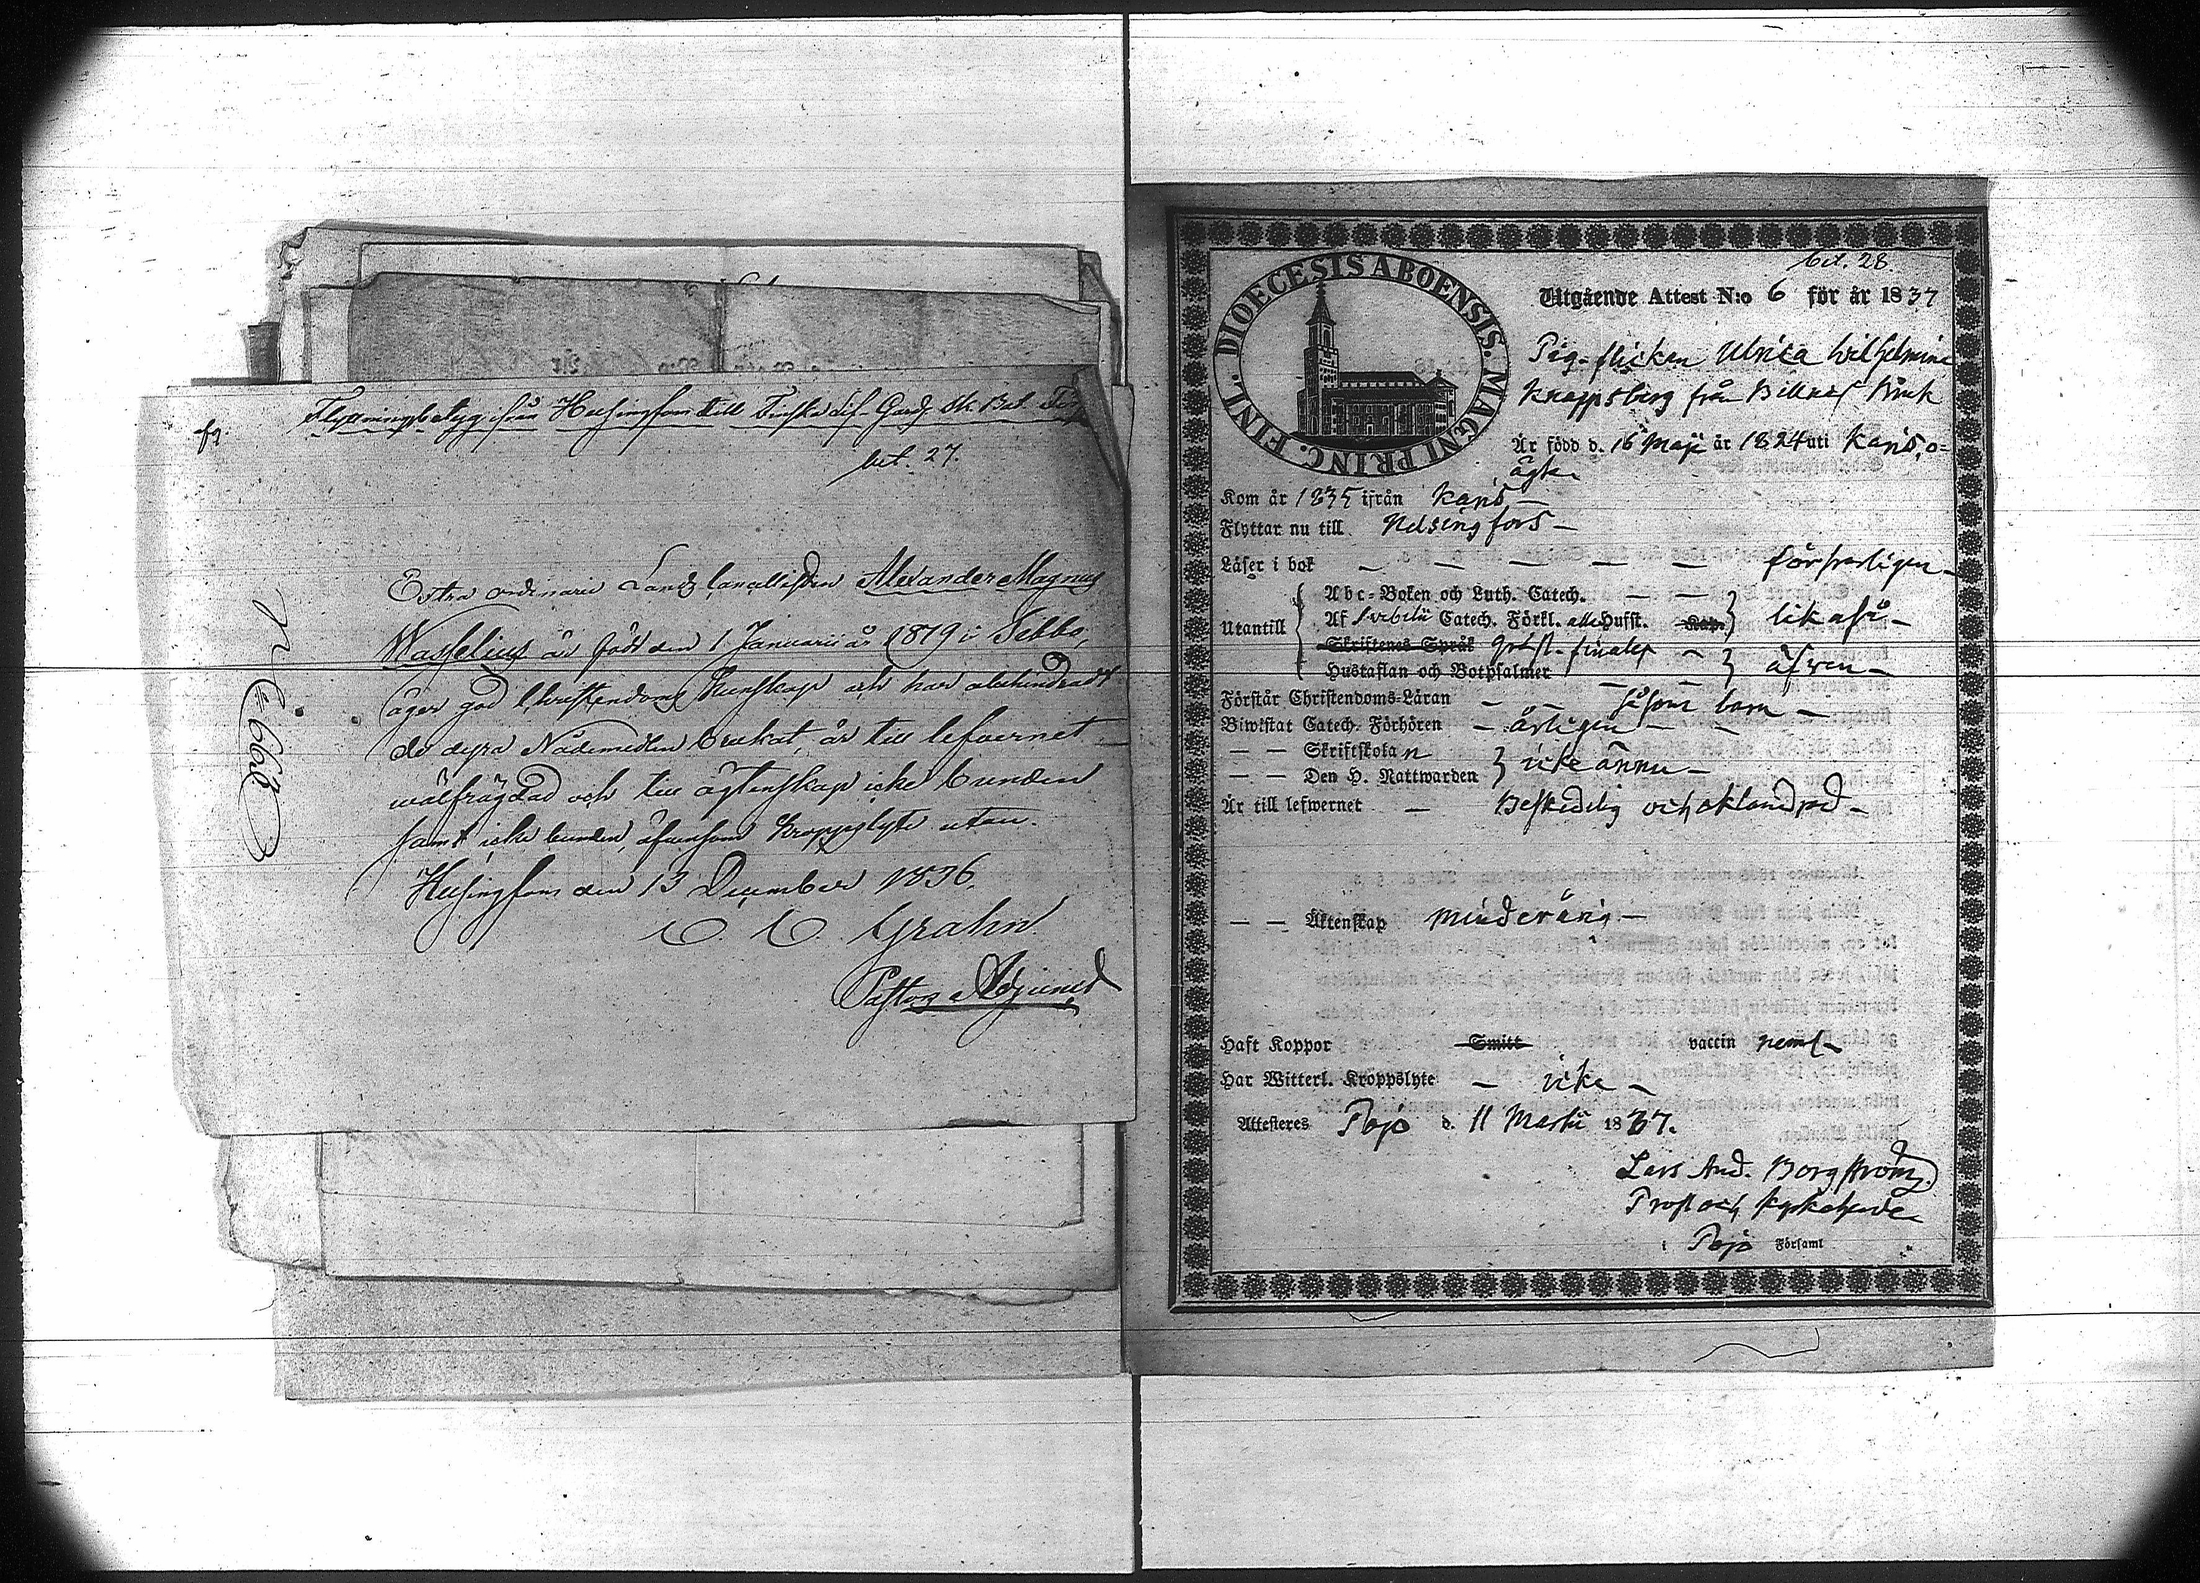 Flyttningsbetyg ifrån Helsingfors till Finska Lif-Gardz Sk. Bat.
bet. 27.
N 668
Extra ordinarie Landz Cancellisten Alexander Magnus
Wasselius är född den 1 Januarii år 1819 i Sibbo,
äger god Christendoms Kunskap och har obehindradt
de dyra Nådemedlen brukat, är till lefvernet
wälfrägdad och till ägtenskap icke bunden
samt icke bunden, äfvensom Kroppslyte utan.
Helsingfors den 13 December 1836.
C. C. Grahn
Pastors Adjunct
bet. 28.
DIOECESIS ABOENSIS. MAGNI PRINC. FINL.
Utgående Attest N:o 6 för år 1837
Pig-flickan Ulrica Wilhelmina
Knappsberg från Billnäs Bruk
Är född d. 16 Maji år 1824 uti Karis, o=
ägta
Kom år 1835 ifrån Karis —
Flyttar nu till Helsingfors —
Läser i bok — — — — — försvarligen —
Utantill { Abc-Boken och Luth. Catech. — —
Af Svebelii Catech. Förkl. alla Hufst. Kap. } likaså —
Skriftenes Språk
Hustaflan och Botpsalmer — — } äfven —
Förstår Christendoms-Läran — — såsom barn —
Biwistat Catech. Förhören — årligen — —
— — Skriftskolan
— — Den H. Nattwarden } icke ännu —
Är till lefwernet — Beskedelig och oklandrad —
— — Äktenskap minderårig —
Haft Koppor Smitt vaccin
Har Witterl. Kroppslyte — icke —
Attesteres Pojo d. 11 Martii 1837.
Lars And. Borgström.
Prost och Kyrkoherde
i Pojo Församl